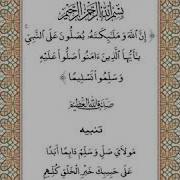 بِسْمِ اللَّهِ الرَّحْمَٰنِ الرَّحِيمِ
﴿ إِنَّ اللَّهَ وَمَلَٰٓئِكَتَهُۥ يُصَلُّونَ عَلَى النَّبِيِّ
يَٰٓأَيُّهَا الَّذِينَ ءَامَنُوا۟ صَلُّوا۟ عَلَيْهِ
وَسَلِّمُوا۟ تَسْلِيمًا ﴾
صَدَقَ اللَّهُ الْعَظِيمُ
تنبيه
مَوْلَايَ صَلِّ وَسَلِّمْ دَائِمًا أَبَدًا
عَلَى حَبِيبِكَ خَيْرِ الْخَلْقِ كُلِّهِمِ